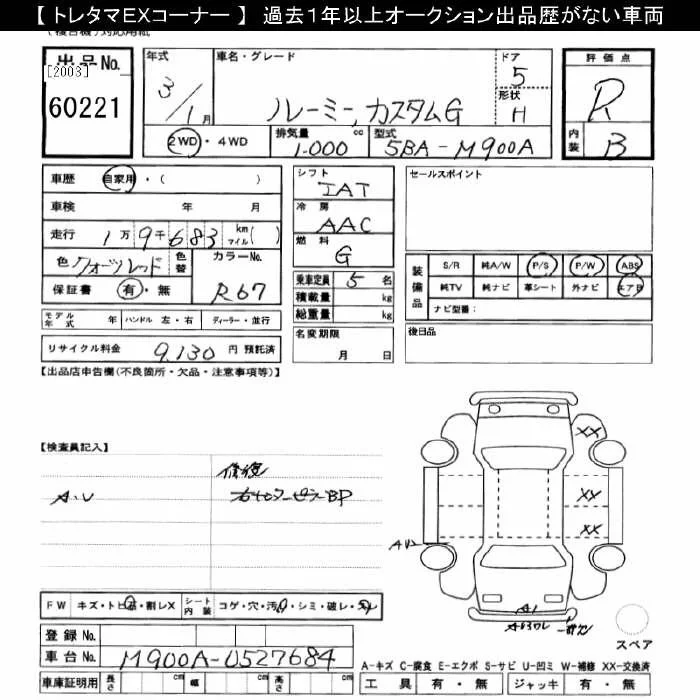 【 トレタマEXコーナー 】 過去１年以上オークション出品歴がない車両
出品No.
[2003]
60221
年式
3/1月
車名・グレード
ルーミー カスタムG
ドア
5
形状
H
評価点
R
内装
B
2WD・4WD
排気量 1.000 cc
型式 5BA-M900A
車歴 自家用・( )
車検 年 月
走行 1万9千683 km マイル( )
色 クォーツレッド 色替 カラーNo.
保証書 有・無 R67
モデル年式 年 ハンドル 左・右 ディーラー・並行
リサイクル料金 9,130 円 預託済
シフト
IAT
冷房
AAC
燃料
G
乗車定員 5 名
積載量 kg
総重量 kg
名変期限
月 日
セールスポイント
装備品
S/R 純A/W P/S P/W ABS
純TV 純ナビ 革シート 外ナビ エアB
ナビ型番：
後日品
【出品店申告欄(不良箇所・欠品・注意事項等)】
【検査員記入】
修復
A.U 右センターピラーBP
XX
XX
XX
A1
FW キズ・トビ石・割レX シート内装 コゲ・穴・汚レ・シミ・破レ・スレ
登録No.
車台No. M900A-0527684
車庫証明用 長さ cm 幅 cm 高さ cm
スペア
A-キズ C-腐食 E-エクボ S-サビ U-凹ミ W-補修 XX-交換済
工具 有・無 ジャッキ 有・無